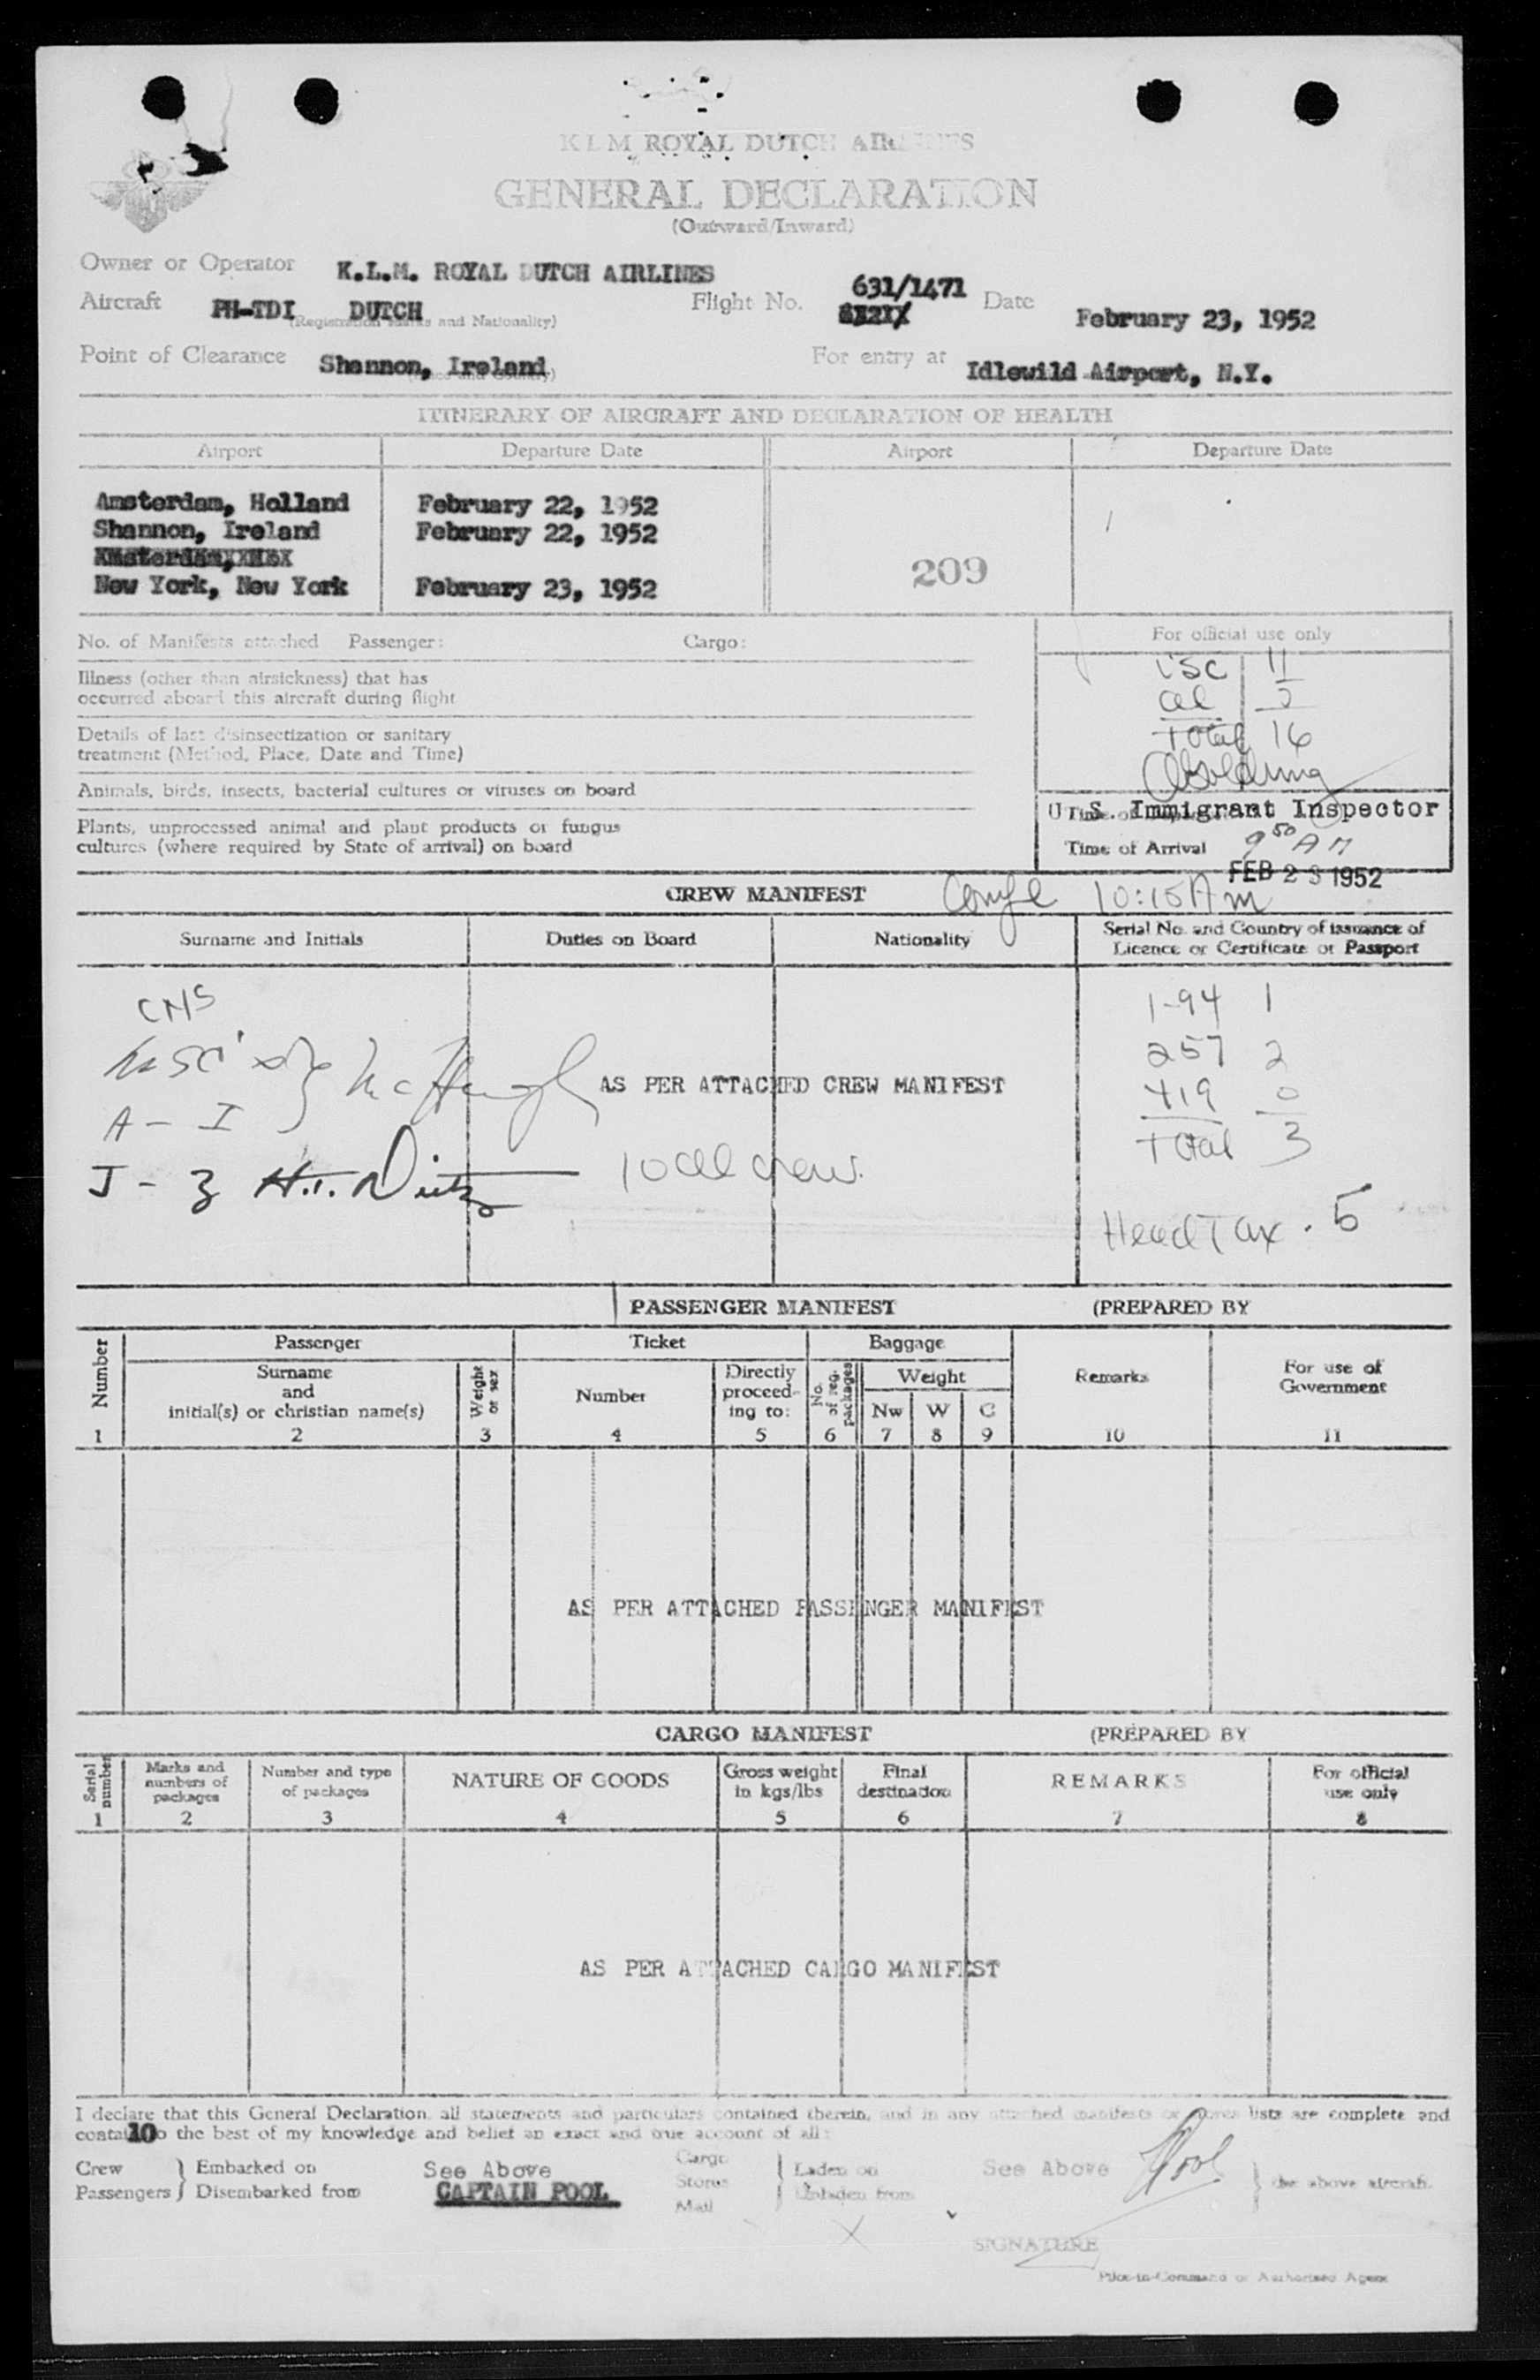 K L M ROYAL DUTCH AIRLINES
GENERAL DECLARATION
(Outward/Inward)
Owner or Operator K.L.M. ROYAL DUTCH AIRLINES
631/1471
Aircraft PH-TDI DUTCH Flight No. Date February 23, 1952
(Registration Marks and Nationality)
Point of Clearance Shannon, Ireland For entry at Idlewild Airport, N.Y.
ITINERARY OF AIRCRAFT AND DECLARATION OF HEALTH
Airport Departure Date Airport Departure Date
Amsterdam, Holland February 22, 1952
Shannon, Ireland February 22, 1952
New York, New York February 23, 1952
209
No. of Manifests attached Passenger: Cargo:
For official use only
Illness (other than airsickness) that has
occurred aboard this aircraft during flight
Details of last disinsectization or sanitary
treatment (Method, Place, Date and Time)
Animals, birds, insects, bacterial cultures or viruses on board
Plants, unprocessed animal and plant products or fungus
cultures (where required by State of arrival) on board
USC 11
Total 16
U. S. Immigrant Inspector
Time of Arrival 9 50 AM
FEB 23 1952
CREW MANIFEST
10:15 AM
Surname and Initials Duties on Board Nationality Serial No. and Country of issuance of
Licence or Certificate or Passport
1-94 1
257 2
419 0
Total 3
A - I
AS PER ATTACHED CREW MANIFEST
J - Z
10 all crew.
Head Tax . 5
PASSENGER MANIFEST (PREPARED BY
Number Passenger Ticket Baggage Remarks For use of Government
Surname and initial(s) or christian name(s) Weight or sex Number Directly proceeding to: No. of reg. packages Weight
Nw W C
1 2 3 4 5 6 7 8 9 10 11
AS PER ATTACHED PASSENGER MANIFEST
CARGO MANIFEST (PREPARED BY
Serial number Marks and numbers of packages Number and type of packages NATURE OF GOODS Gross weight in kgs/lbs Final destination REMARKS For official use only
1 2 3 4 5 6 7 8
AS PER ATTACHED CARGO MANIFEST
I declare that this General Declaration, all statements and particulars contained therein, and in any attached manifests or stores lists are complete and
contain to the best of my knowledge and belief an exact and true account of all:
10
Crew Embarked on See Above Cargo Laden on See Above Pool
Passengers Disembarked from CAPTAIN POOL Stores Unladen from the above aircraft.
Mail
SIGNATURE
Pilot-in-Command or Authorised Agent